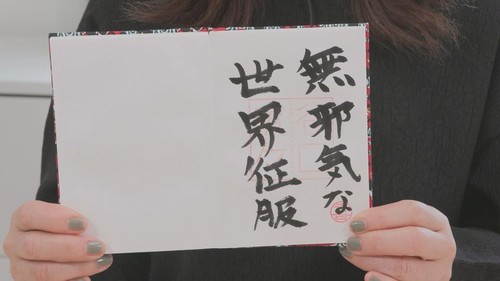 無邪気な
世界征服